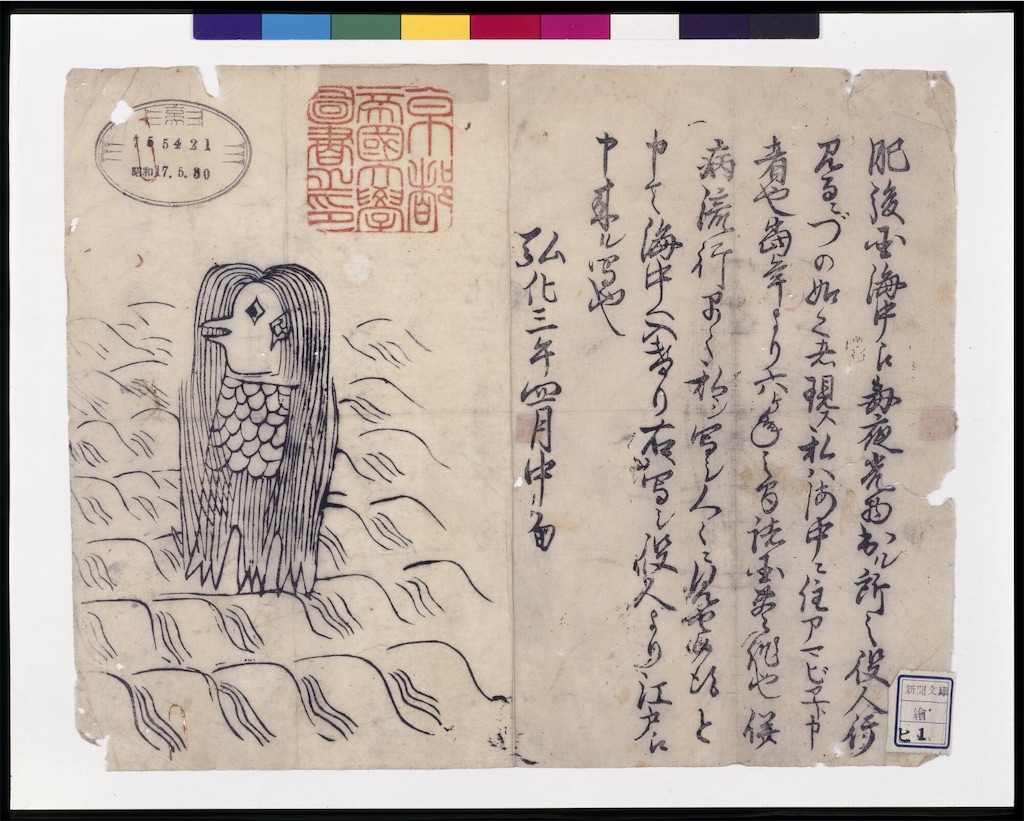 肥後国海中え毎夜光物出ル所之役人行
見るニづの如く者現ス私ハ海中ニ住アマビヱト申
者也當年より六ヶ年之間諸国豊作也併
病流行早々私ヲ写シ人々ニ見セ候得と
申て海中へ入けり右写シ役人より江戸え
申来ル写也
弘化三年四月中旬
京都
帝國大學
圖書之印
昭和17.5.30
新聞文庫
繪
ヒ 1.